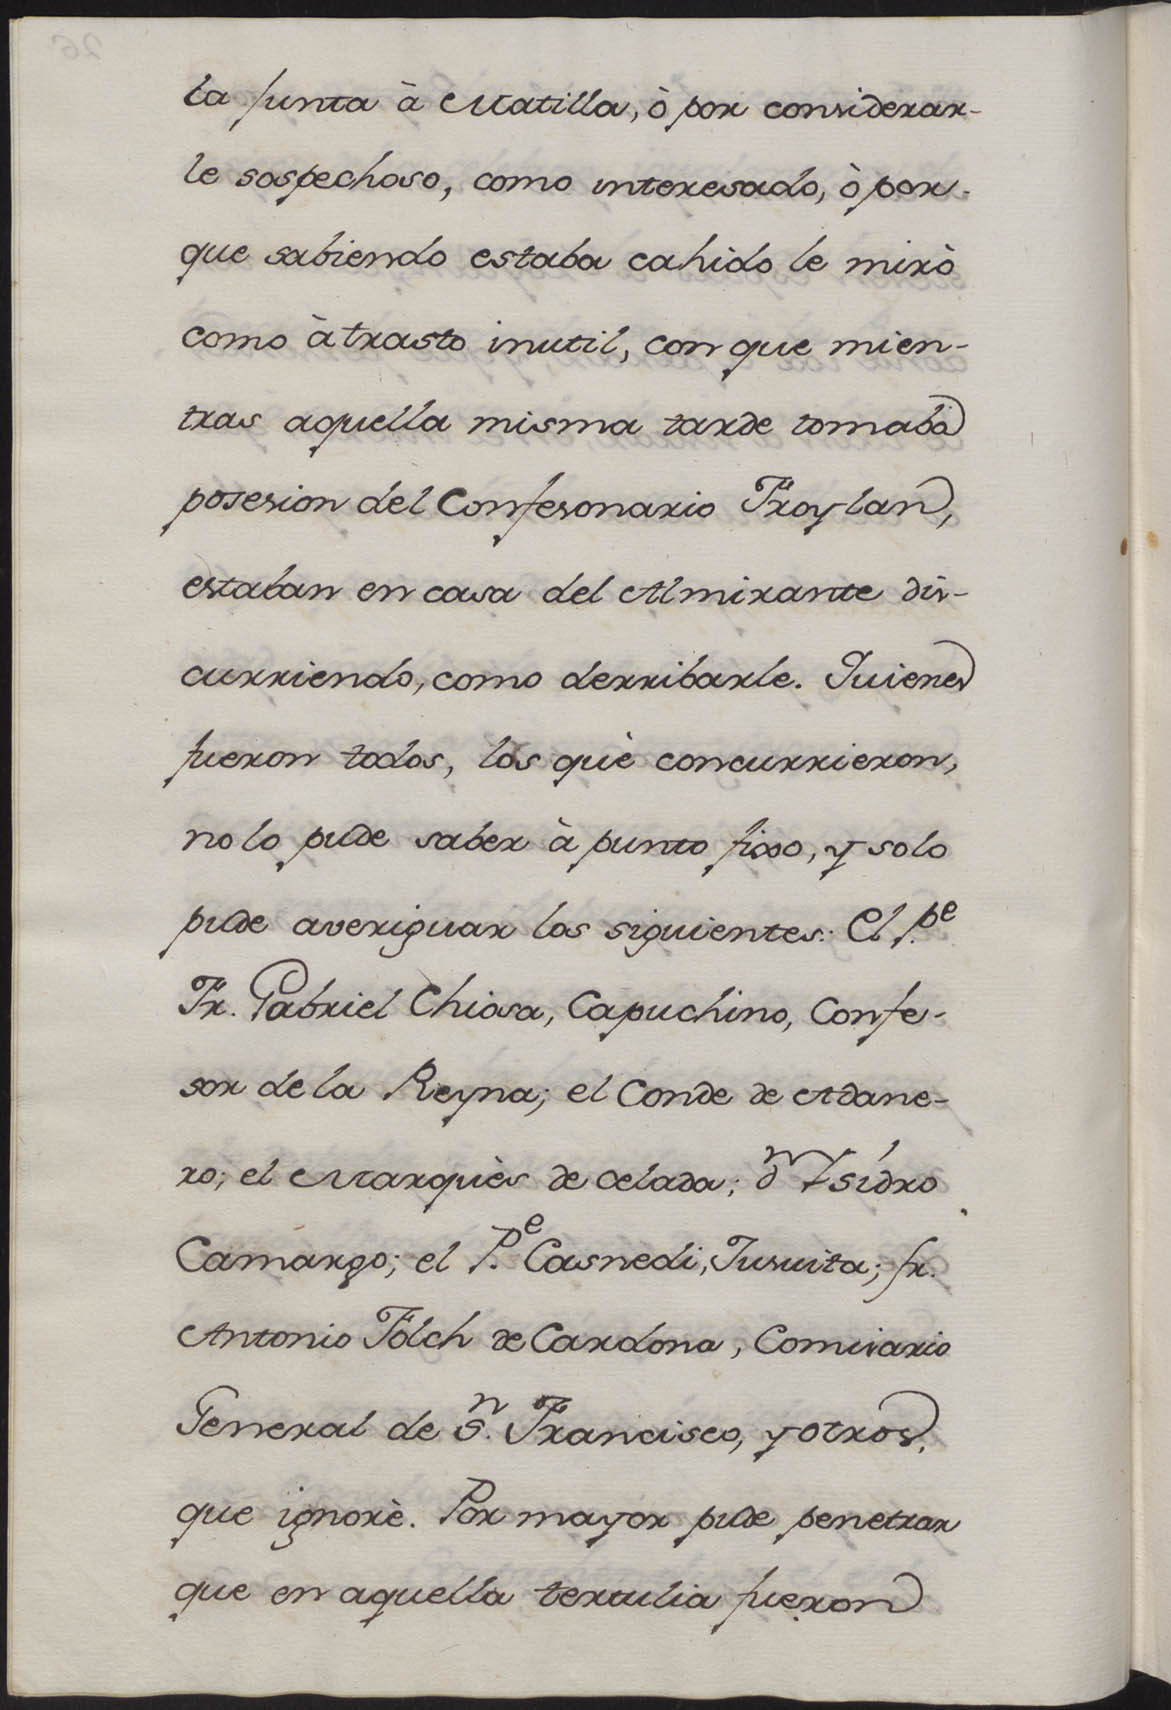 la Junta à Matilla, ò por considerar-
le sospechoso, como interesado, ò por-
que sabiendo estaba cahìdo le mirò
como à trasto inutil, con que mien-
tras aquella misma tarde tomaba
posesion del Confesonario Froylan,
estaban en casa del Almirante dis-
curriendo, como derribarle. Quienes
fueron todos, los què concurrieron,
no lo pude saber à punto fixo, y solo
pude averiguar los siguientes: El P.e
Fr. Gabriel Chiasa, Capuchino, Confe-
sor de la Reyna; el Conde de Adane-
ro; el Marquès de Celada; dn Ysídro
Camargo; el P.e Casnedi, Jusuita; fr.
Antonio Fölch de Cardona, Comisario
General de S.n Francisco, y otros,
que ignorè. Por mayor pude penetrar
que en aquella tertulia fueron